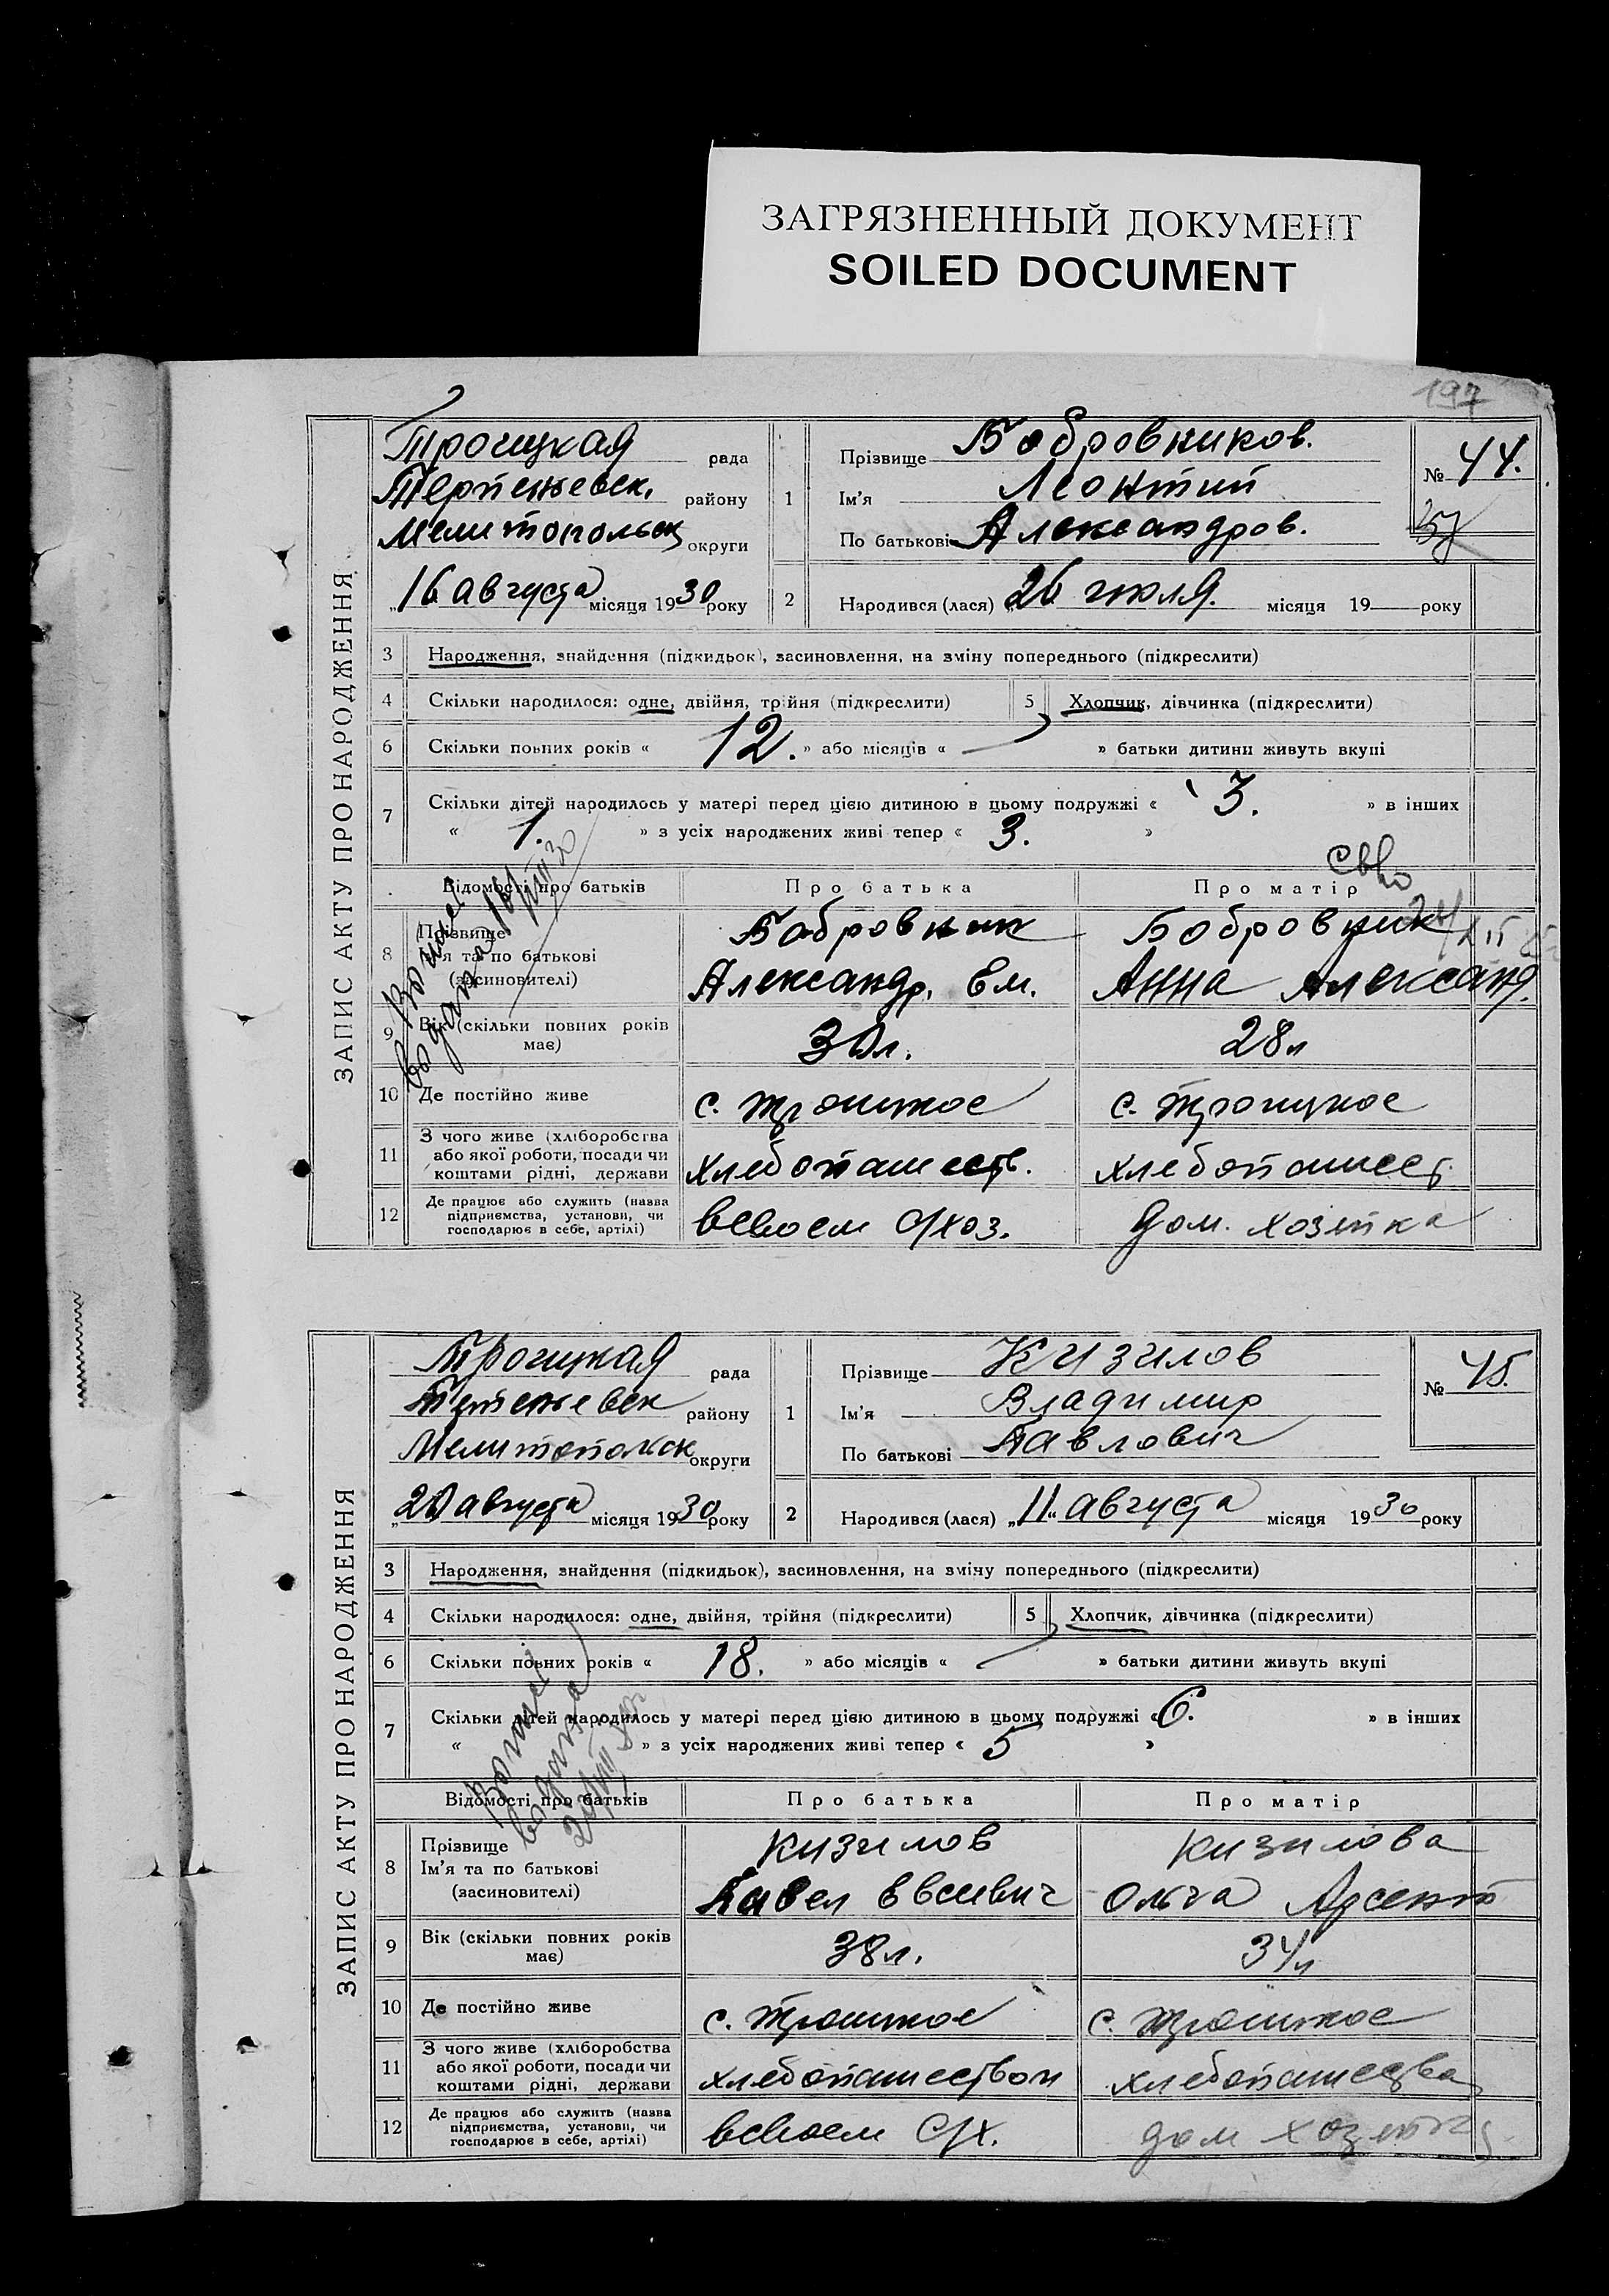 ЗАГРЯЗНЕННЫЙ ДОКУМЕНТ
SOILED DOCUMENT
197
ЗАПИС АКТУ ПРО НАРОДЖЕННЯ
Троицкая рада
Терпеньевск. району
Мелитопольск округи
„16 августа місяця 1930 року
1
Прізвище Бобровников.
Ім'я Леонтий
По батькові Александров.
№ 44.
2
Народився (лася) 26 июля. місяця 19 року
3 Народження, знайдення (підкидьок), засиновлення, на зміну попереднього (підкреслити)
4 Скільки народилося: одне, двійня, трійня (підкреслити) 5 Хлопчик, дівчинка (підкреслити)
6 Скільки повних років « 12. » або місяців « — » батьки дитини живуть вкупі
7 Скільки дітей народилось у матері перед цією дитиною в цьому подружжі « 3. » в інших
« 1. » з усіх народжених живі тепер « 3. »
Відомості про батьків Про батька Про матір
8 Прізвище
Ім'я та по батькові
(засиновителі)
Бобровник
Александр. Ем.
Бобровник
Анна Александ.
9 Вік (скільки повних років має) 30 л. 28 л
10 Де постійно живе с. Троицкое с. Троицкое
11 З чого живе (хліборобства
або якої роботи, посади чи
коштами рідні, держави
хлебопашеств. хлебопашест
12 Де працює або служить (назва
підприємства, установи, чи
господарює в себе, артілі)
в своем с/хоз. дом. хозяйка
Выпись
выдана 16/VIII 30
ЗАПИС АКТУ ПРО НАРОДЖЕННЯ
Троицкая рада
району
Мелитопольск округи
„20 августа місяця 1930 року
1
Прізвище Кизилов
Ім'я Владимир
По батькові Павлович
№ 45.
2
Народився (лася) „11" августа місяця 1930 року
3 Народження, знайдення (підкидьок), засиновлення, на зміну попереднього (підкреслити)
4 Скільки народилося: одне, двійня, трійня (підкреслити) 5 Хлопчик, дівчинка (підкреслити)
6 Скільки повних років « 18. » або місяців « — » батьки дитини живуть вкупі
7 Скільки дітей народилось у матері перед цією дитиною в цьому подружжі « 6. » в інших
« » з усіх народжених живі тепер « 5 »
Відомості про батьків Про батька Про матір
8 Прізвище
Ім'я та по батькові
(засиновителі)
Кизилов
Павел Евсеевич
Кизилова
Ольга Арсент
9 Вік (скільки повних років має) 38 л. 34 л
10 Де постійно живе с. Троицкое с. Троицкое
11 З чого живе (хліборобства
або якої роботи, посади чи
коштами рідні, держави
хлебопашеством хлебопашества
12 Де працює або служить (назва
підприємства, установи, чи
господарює в себе, артілі)
в своем с/х. дом хозяйка